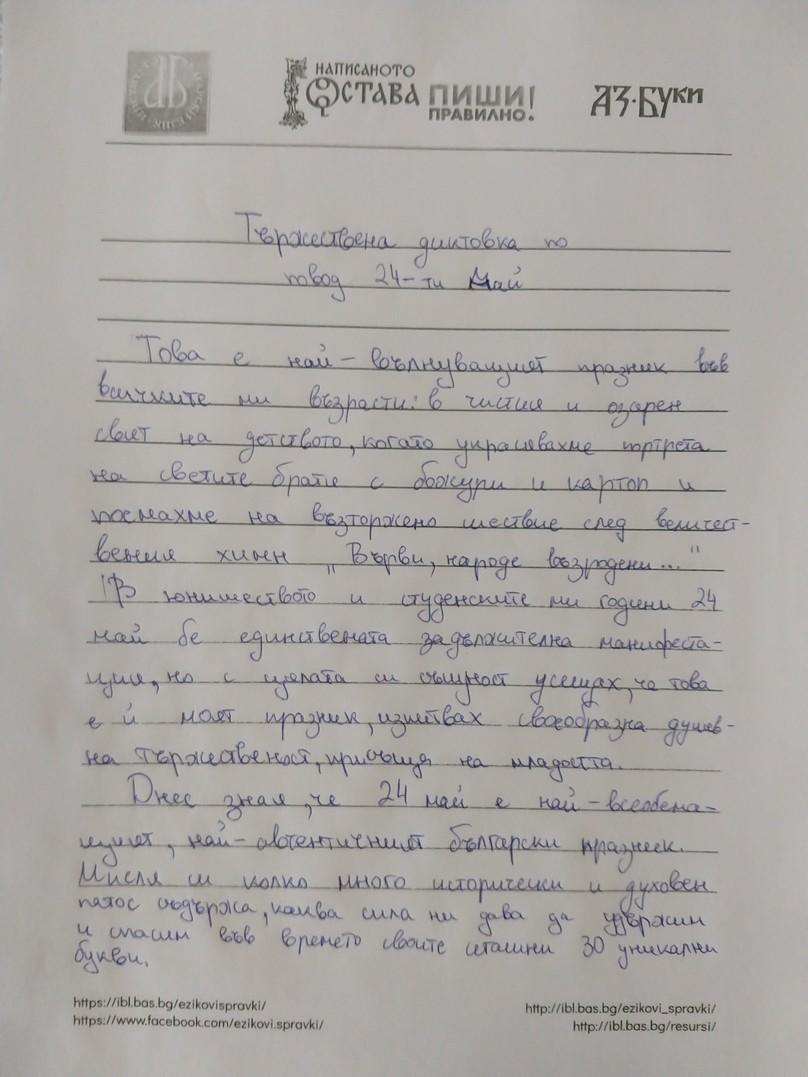 НАПИСАНОТО
ОСТАВА ПИШИ!
ПРАВИЛНО!
АЗ·БУКИ
Тържествена диктовка по
повод 24-ти Май
Това е най-вълнуващият празник във
всичките ми възрасти: в чистия и озарен
свят на детството, когато украсявахме портрета
на светите братя с божури и картон и
поемахме на възторжено шествие след величест-
вения химн „Върви, народе възродени..."
В юношеството и студенските ми години 24
май бе единствената задължителна манифеста-
ция, но с цялата си същност усещах, че това
е и моят празник, изпитвах своеобразна душев-
на тържественост, присъща на младостта.
Днес зная, че 24 май е най-всеобема-
щият, най-автентичният български празник.
Мисля си колко много исторически и духовен
патос съдържа, каква сила ни дава да удържим
и спасим във времето своите сташни 30 уникални
букви.
https://ibl.bas.bg/ezikovispravki/
https://www.facebook.com/ezikovi.spravki/
http://ibl.bas.bg/ezikovi_spravki/
http://ibl.bas.bg/resursi/